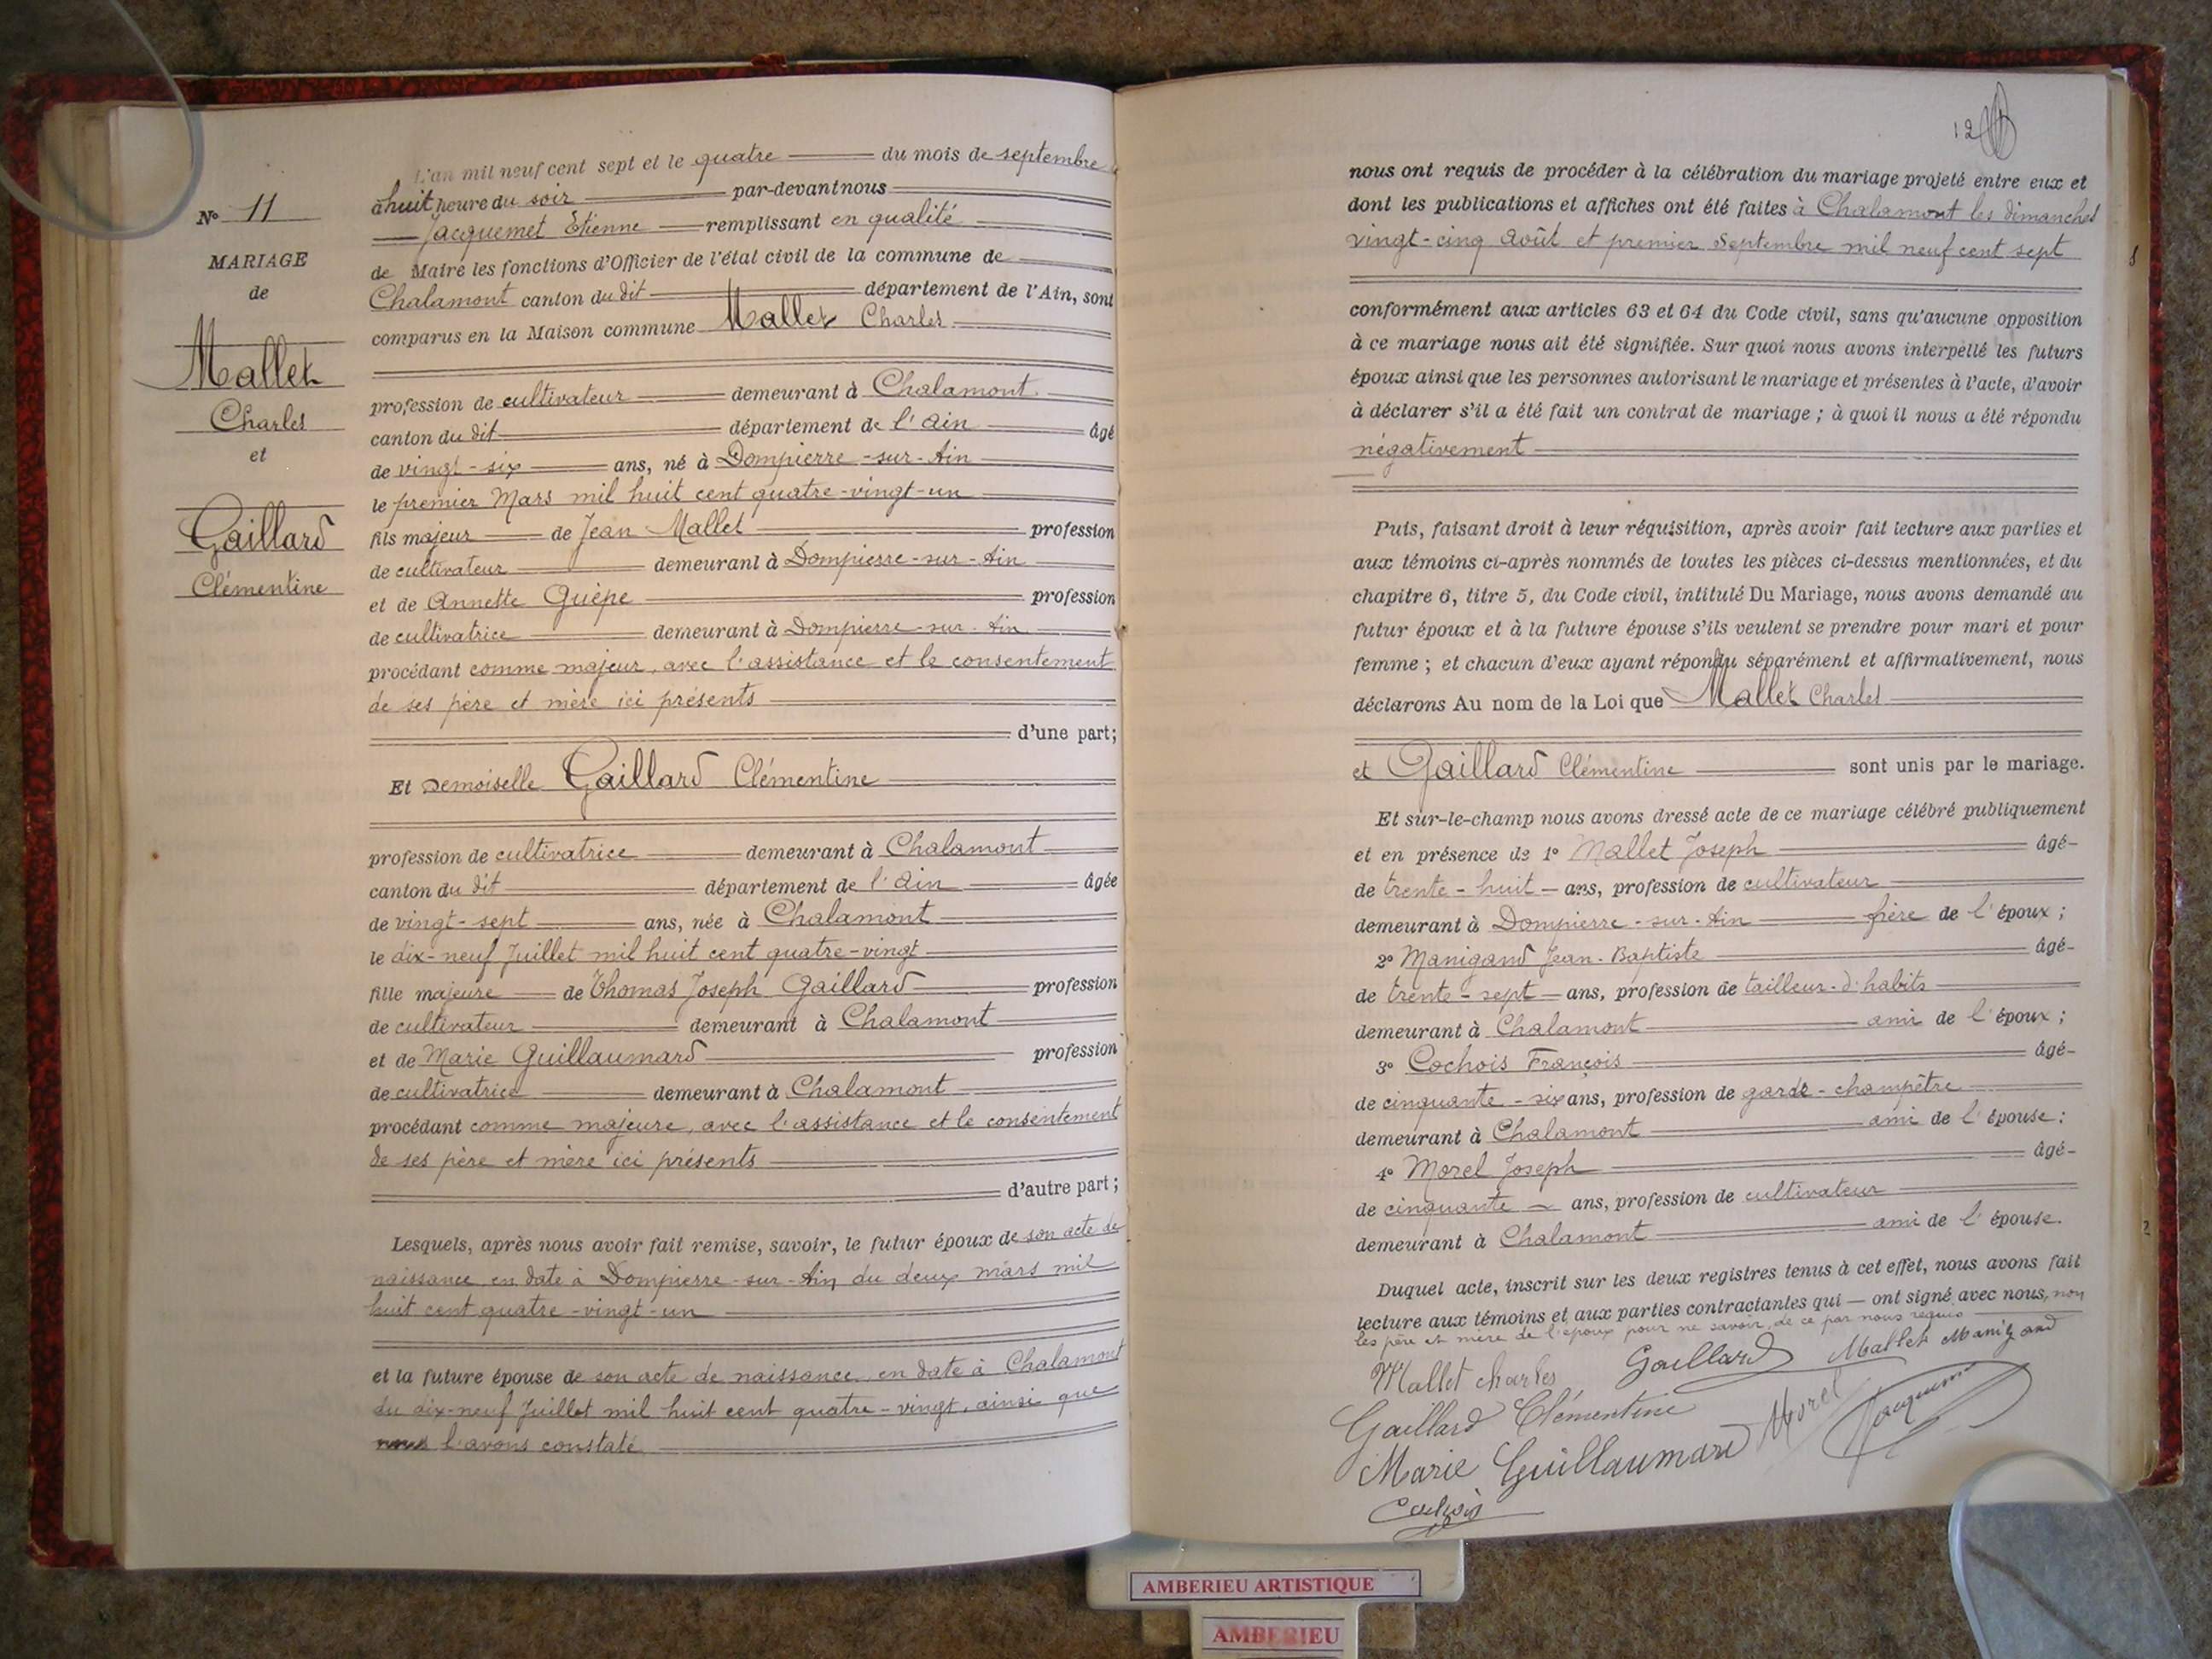 N° 11
MARIAGE
de
Mallet
Charles
et
Gaillard
Clémentine
L'an mil neuf cent sept et le quatre du mois de septembre
à huit heure du soir par-devant nous
Jacquemet Etienne remplissant en qualité
de Maire les fonctions d'Officier de l'état civil de la commune de
Chalamont canton du dit département de l'Ain, sont
comparus en la Maison commune Mallet Charles
profession de cultivateur demeurant à Chalamont
canton du dit département de l'Ain âgé
de vingt-six ans, né à Dompierre-sur-Ain
le premier Mars mil huit cent quatre-vingt-un
fils majeur de Jean Mallet profession
de cultivateur demeurant à Dompierre-sur-Ain
et de Annette Guèpe profession
de cultivatrice demeurant à Dompierre-sur-Ain
procédant comme majeur, avec l'assistance et le consentement
de ses père et mère ici présents
d'une part;
Et Demoiselle Gaillard Clémentine
profession de cultivatrice demeurant à Chalamont
canton du dit département de l'Ain âgée
de vingt-sept ans, née à Chalamont
le dix-neuf Juillet mil huit cent quatre-vingt
fille majeure de Thomas Joseph Gaillard profession
de cultivateur demeurant à Chalamont
et de Marie Guillaumard profession
de cultivatrice demeurant à Chalamont
procédant comme majeure, avec l'assistance et le consentement
de ses père et mère ici présents
d'autre part;
Lesquels, après nous avoir fait remise, savoir, le futur époux de son acte de
naissance en date à Dompierre-sur-Ain du deux mars mil
huit cent quatre-vingt-un
et la future épouse de son acte de naissance, en date à Chalamont
du dix-neuf Juillet mil huit cent quatre-vingt, ainsi que
nous l'avons constaté
12
nous ont requis de procéder à la célébration du mariage projeté entre eux et
dont les publications et affiches ont été faites à Chalamont les dimanches
vingt-cinq Août et premier Septembre mil neuf cent sept
conformément aux articles 63 et 64 du Code civil, sans qu'aucune opposition
à ce mariage nous ait été signifiée. Sur quoi nous avons interpellé les futurs
époux ainsi que les personnes autorisant le mariage et présentes à l'acte, d'avoir
à déclarer s'il a été fait un contrat de mariage ; à quoi il nous a été répondu
négativement
Puis, faisant droit à leur réquisition, après avoir fait lecture aux parties et
aux témoins ci-après nommés de toutes les pièces ci-dessus mentionnées, et du
chapitre 6, titre 5, du Code civil, intitulé Du Mariage, nous avons demandé au
futur époux et à la future épouse s'ils veulent se prendre pour mari et pour
femme ; et chacun d'eux ayant répondu séparément et affirmativement, nous
déclarons Au nom de la Loi que Mallet Charles
et Gaillard Clémentine sont unis par le mariage.
Et sur-le-champ nous avons dressé acte de ce mariage célébré publiquement
et en présence de 1° Mallet Joseph âgé
de trente-huit ans, profession de cultivateur
demeurant à Dompierre-sur-Ain frère de l'époux ;
2° Manigand Jean-Baptiste âgé
de trente-sept ans, profession de tailleur-d'habits
demeurant à Chalamont ami de l'époux ;
3° Cochois François âgé
de cinquante-six ans, profession de garde-champêtre
demeurant à Chalamont ami de l'épouse ;
4° Morel Joseph âgé
de cinquante ans, profession de cultivateur
demeurant à Chalamont ami de l'épouse.
Duquel acte, inscrit sur les deux registres tenus à cet effet, nous avons fait
lecture aux témoins et aux parties contractantes qui ont signé avec nous, non
les père et mère de l'époux pour ne savoir, de ce par nous requis
Mallet charles Gaillard Mallet Manigand
Gaillard Clémentine Morel Jacquemet
Marie Guillaumard
Cochois
AMBERIEU ARTISTIQUE
AMBERIEU